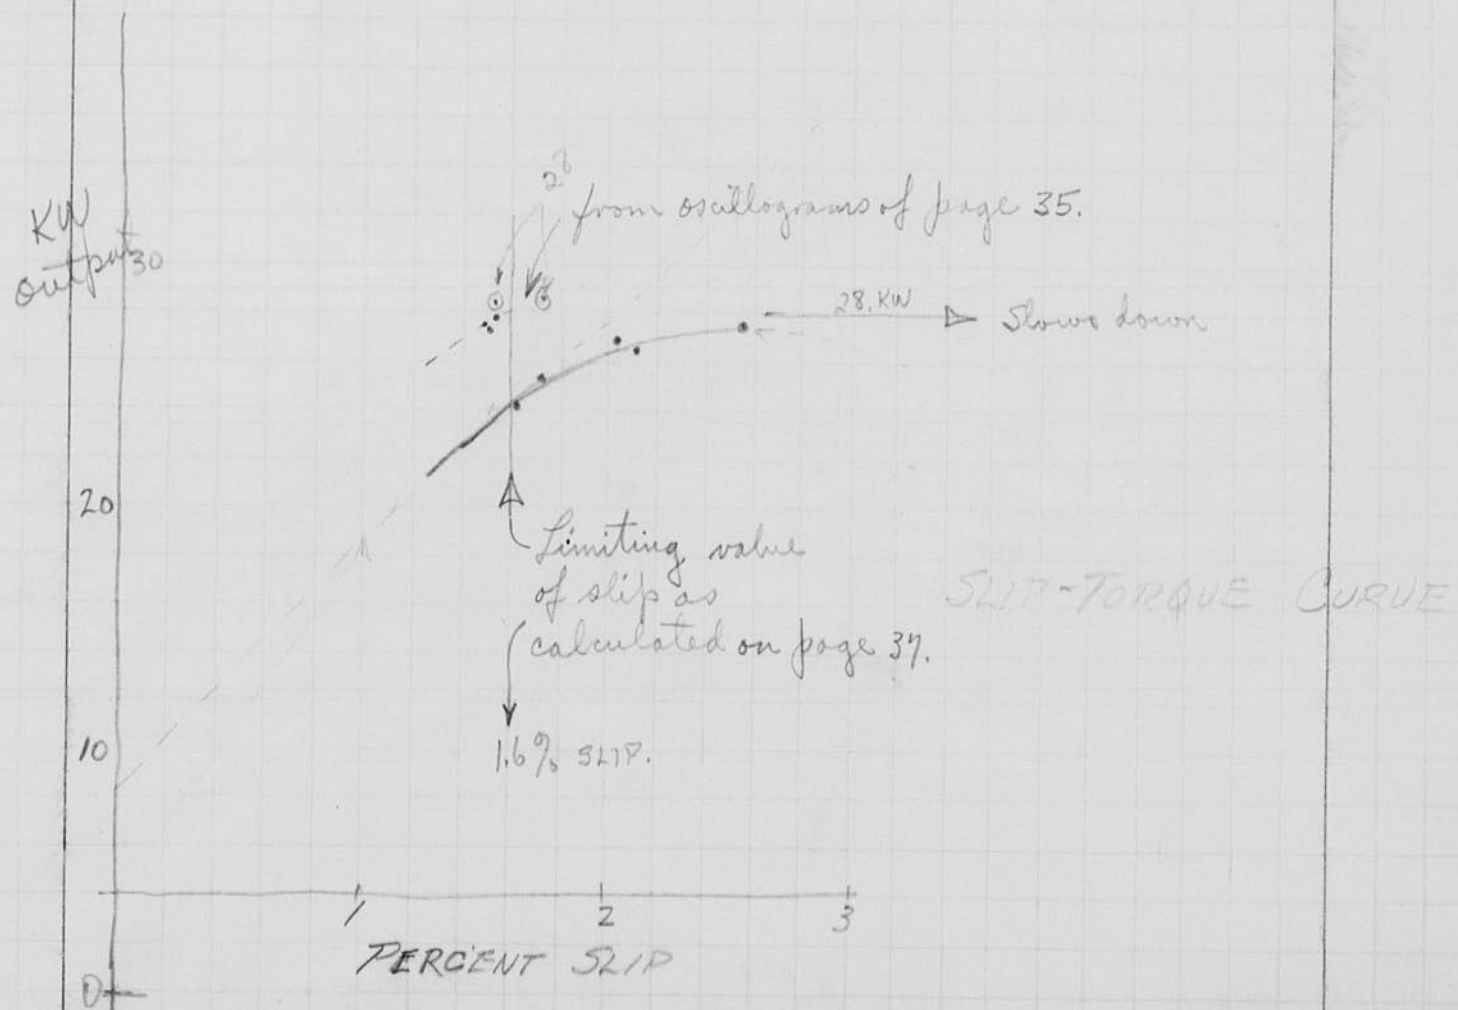 KW
output
30
from oscillograms of page 35.
28. KW
Slows down
20
Limiting value
of slip as
calculated on page 37.
SLIP-TORQUE CURVE
10
1.6% SLIP.
1
2
3
PERCENT SLIP
0